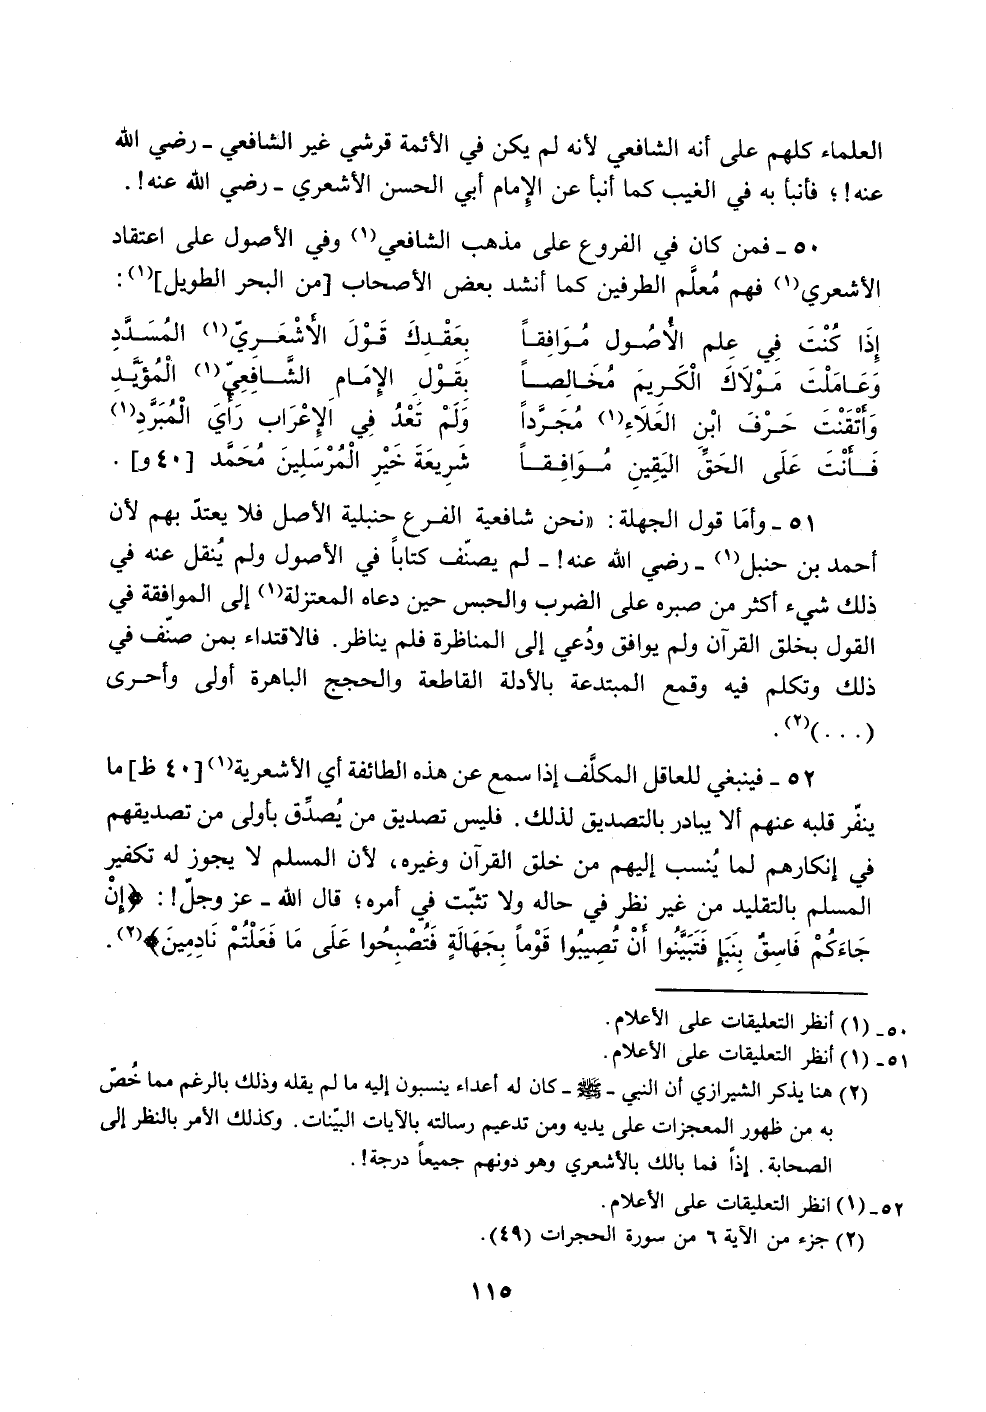 العلماء كلهم على أنه الشافعي لأنه لم يكن في الأئمة قرشي غير الشافعي ـ رضي الله
عنه!؛ فأنبأ به في الغيب كما أنبأ عن الإمام أبي الحسن الأشعري ـ رضي الله عنه!.
٥٠ ـ فمن كان في الفروع على مذهب الشافعي(١) وفي الأصول على اعتقاد
الأشعري(١) فهم مُعلَّم الطرفين كما أنشد بعض الأصحاب [من البحر الطويل](١):
إِذَا كُنْتَ فِي عِلمِ الأُصُولِ مُوَافِقاً بِعَقْدِكَ قَوْلَ الأَشْعَرِيّ(١) المُسَدَّدِ
وَعَامَلْتَ مَوْلاَكَ الْكَرِيمَ مُخَالِصاً بِقَوْلِ الإِمَامِ الشَّافِعِيّ(١) الْمُؤَيَّدِ
وَأَتْقَنْتَ حَرْفَ ابْنِ العَلاَءِ(١) مُجَرَّداً وَلَمْ تَعْدُ فِي الإِعْرَابِ رَأْيَ الْمُبَرَّدِ(١)
فَأَنْتَ عَلَى الحَقِّ اليَقِينِ مُوَافِقاً شَرِيعَةَ خَيْرِ الْمُرْسَلِينَ مُحَمَّد [٤٠ و] .
٥١ ـ وأمَا قول الجهلة: «نحن شافعية الفرع حنبلية الأصل فلا يعتدّ بهم لأن
أحمد بن حنبل(١) ـ رضي الله عنه! ـ لم يصنّف كتاباً في الأصول ولم يُنقل عنه في
ذلك شيء أكثر من صبره على الضرب والحبس حين دعاه المعتزلة(١) إلى الموافقة في
القول بخلق القرآن ولم يوافق ودُعي إلى المناظرة فلم يناظر. فالاقتداء بمن صنّف في
ذلك وتكلم فيه وقمع المبتدعة بالأدلة القاطعة والحجج الباهرة أولى وأحرى
(...)(٢).
٥٢ ـ فينبغي للعاقل المكلَّف إذا سمع عن هذه الطائفة أي الأشعرية(١) [٤٠ ظ] ما
ينفّر قلبه عنهم ألا يبادر بالتصديق لذلك. فليس تصديق من يُصدِّق بأولى من تصديقهم
في إنكارهم لما يُنسب إليهم من خلق القرآن وغيره، لأن المسلم لا يجوز له تكفير
المسلم بالتقليد من غير نظر في حاله ولا تثبّت في أمره؛ قال الله ـ عز وجلّ!: ﴿إِنْ
جَاءَكُمْ فَاسِقٌ بِنَبَإٍ فَتَبَيَّنُوا أَنْ تُصِيبُوا قَوْماً بِجَهَالَةٍ فَتُصْبِحُوا عَلَى مَا فَعَلْتُمْ نَادِمِينَ﴾(٢).
٥٠ـ (١) أنظر التعليقات على الأعلام.
٥١ـ (١) أنظر التعليقات على الأعلام.
(٢) هنا يذكر الشيرازي أن النبي ـ ﷺ ـ كان له أعداء ينسبون إليه ما لم يقله وذلك بالرغم مما خُصّ
به من ظهور المعجزات على يديه ومن تدعيم رسالته بالآيات البيّنات. وكذلك الأمر بالنظر إلى
الصحابة. إذاً فما بالك بالأشعري وهو دونهم جميعاً درجة!.
٥٢ـ (١) انظر التعليقات على الأعلام.
(٢) جزء من الآية ٦ من سورة الحجرات (٤٩).
١١٥